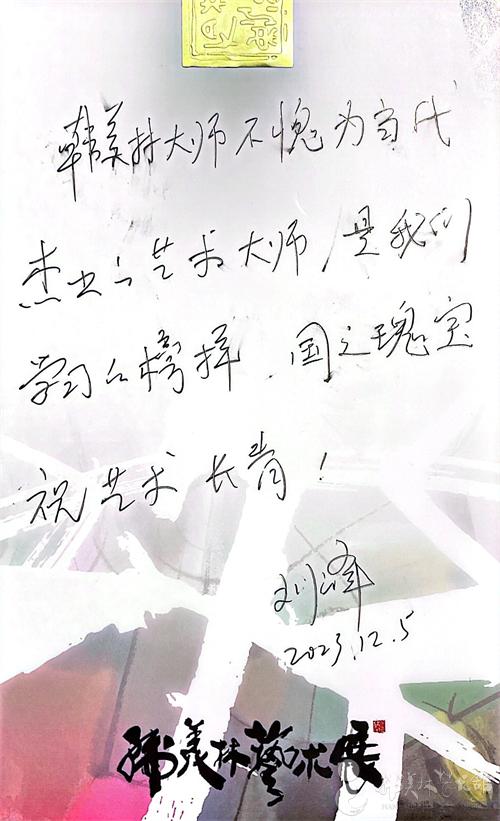 韩美林大师不愧为当代
杰出的艺术大师，是我们
学习的榜样．国之瑰宝
祝艺术长青！
刘峰
2023.12.5
韩美林艺术展